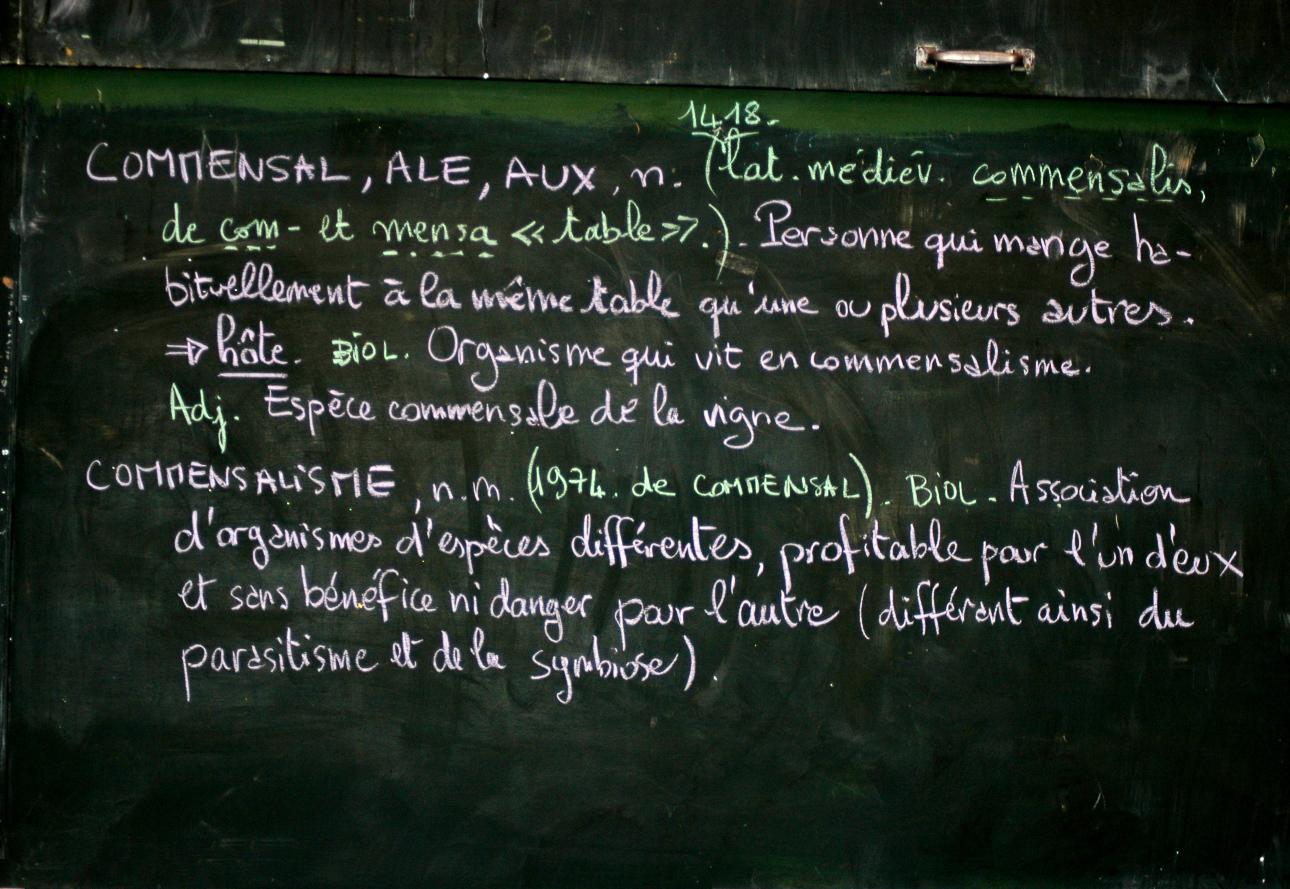 1418.
COMMENSAL, ALE, AUX, n. (lat. médiév. commensalis,
de com- et mensa « table ».). Personne qui mange ha-
bituellement à la même table qu'une ou plusieurs autres.
⇒ hôte. BIOL. Organisme qui vit en commensalisme.
Adj. Espèce commensale de la vigne.
COMMENSALISME, n.m. (1974. de COMMENSAL). BIOL. Association
d'organismes d'espèces différentes, profitable pour l'un d'eux
et sans bénéfice ni danger pour l'autre (différent ainsi du
parasitisme et de la symbiose).